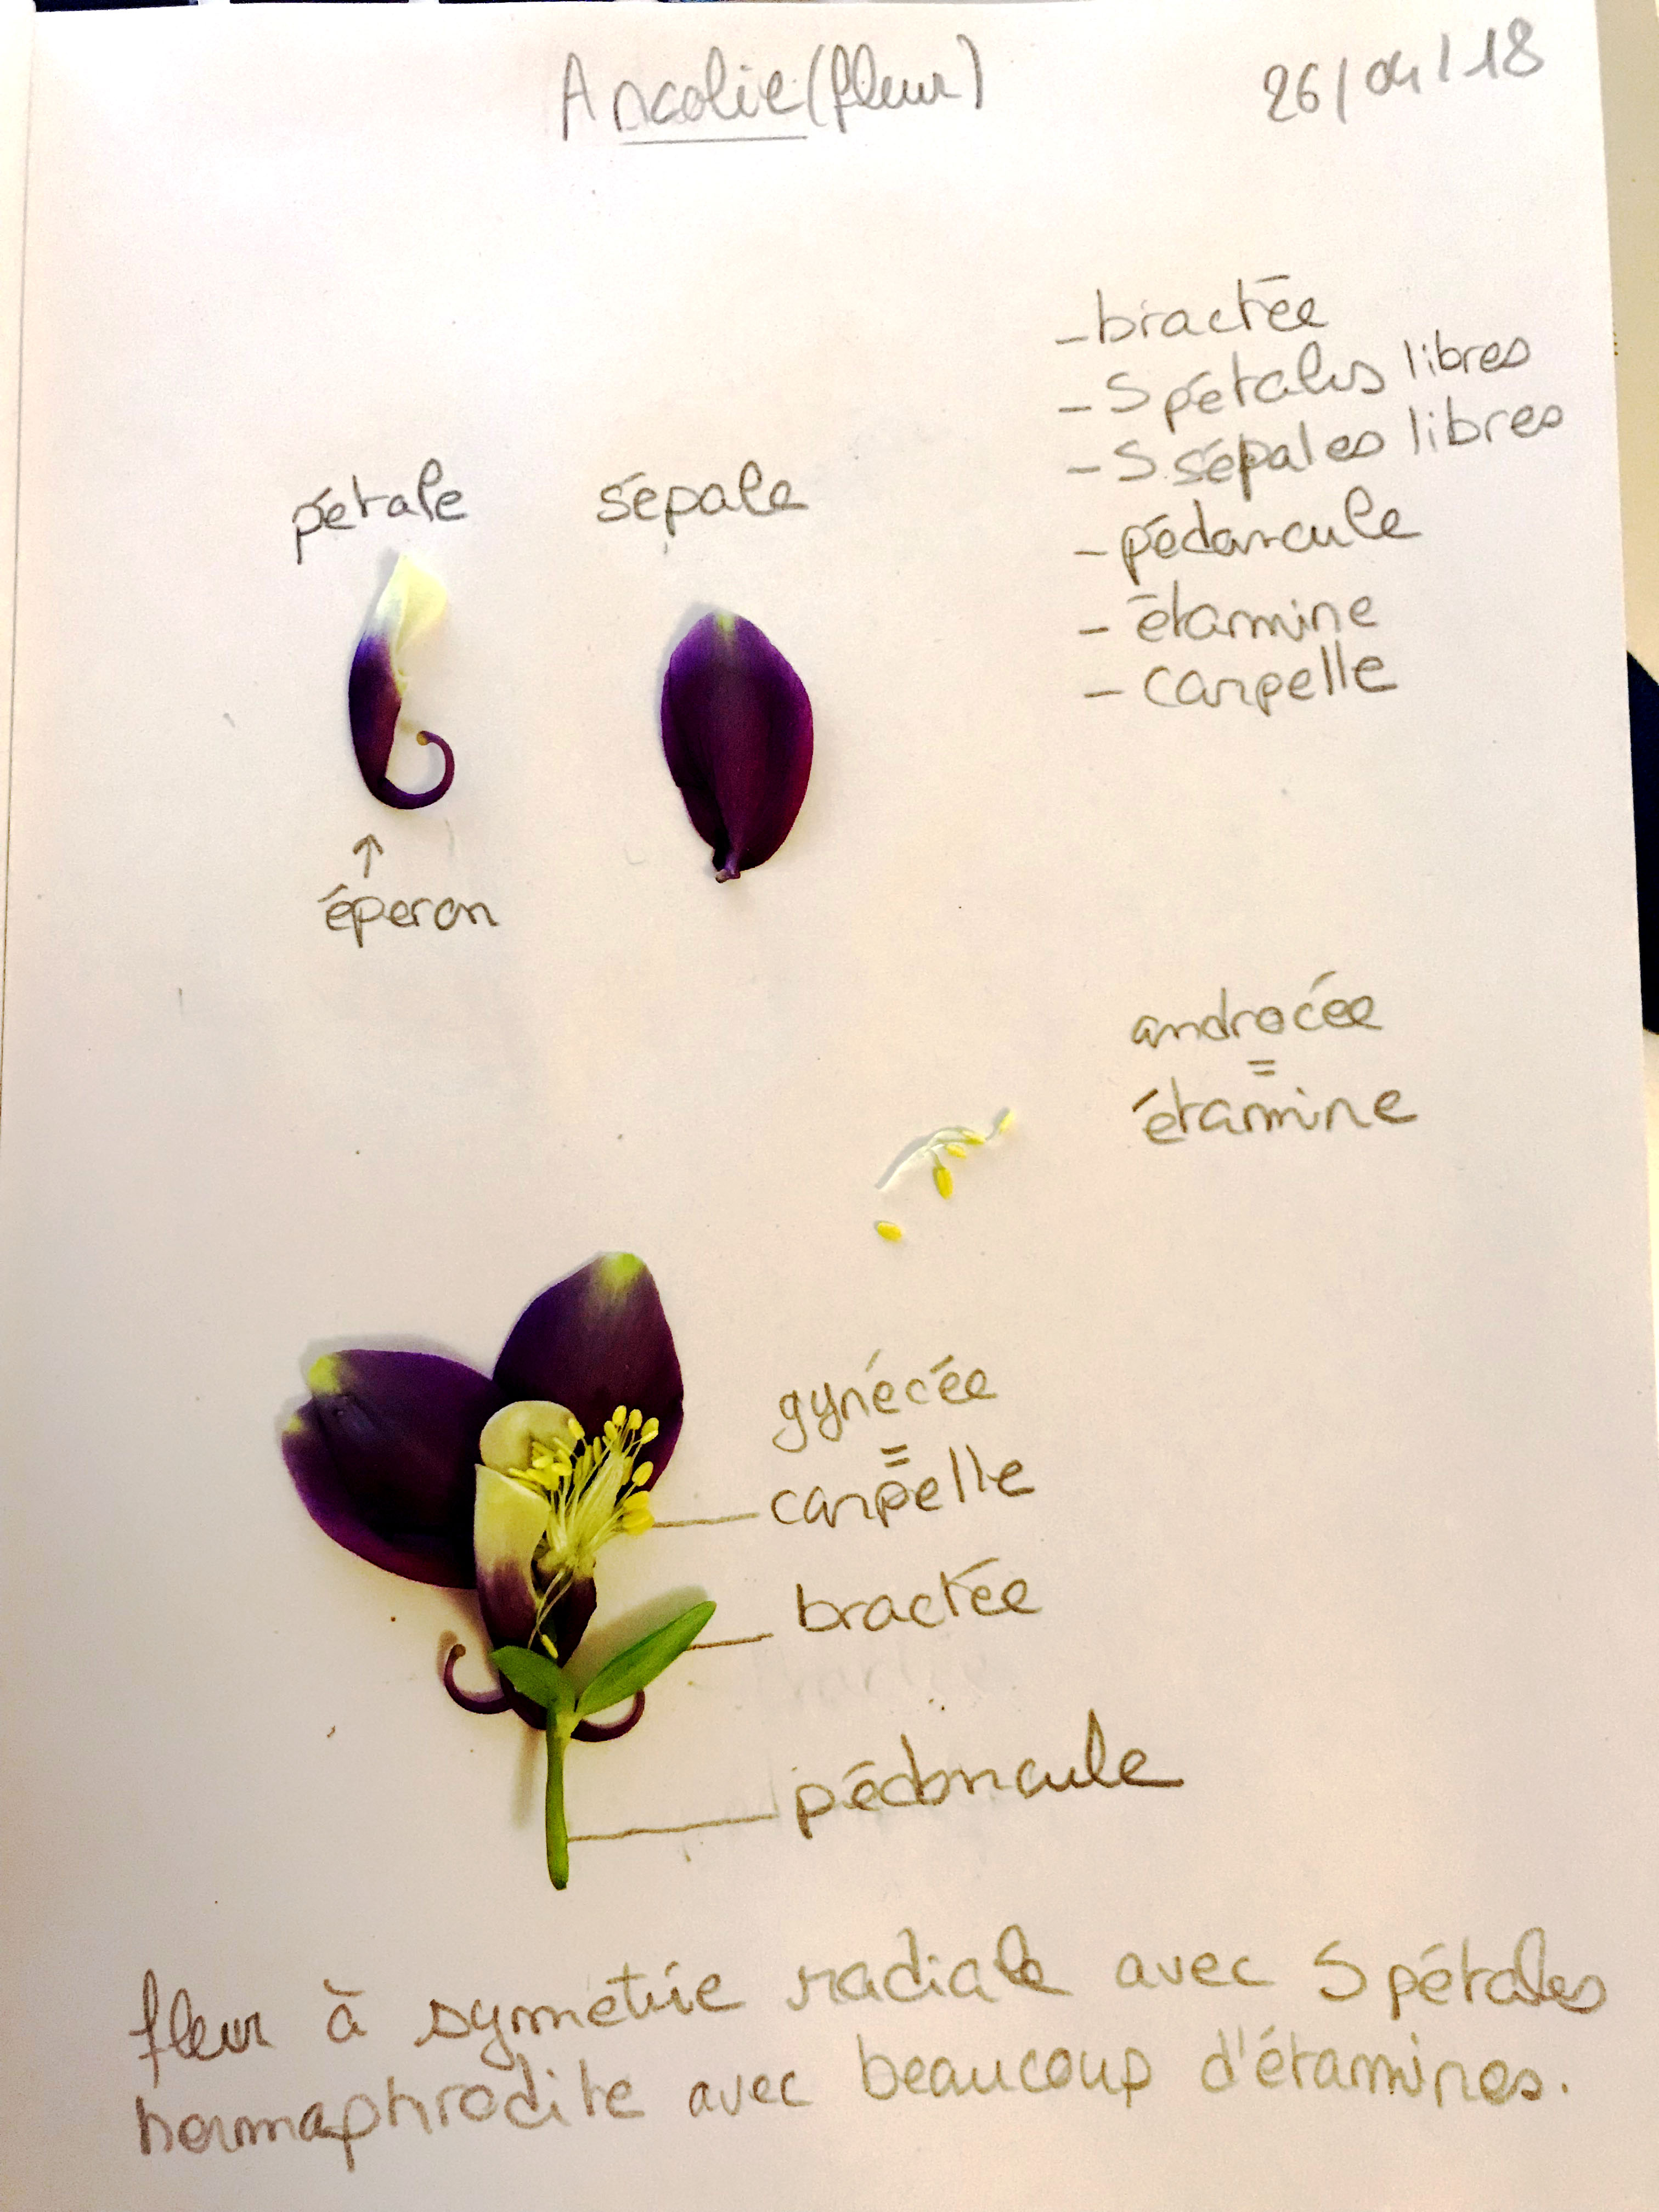 Ancolie (fleur)
26/04/18
- bractée
- 5 pétales libres
- 5 sépales libres
- pédoncule
- étamine
- carpelle
pétale
sépale
↑
éperon
androcée
=
étamine
gynécée
=
carpelle
bractée
pédoncule
fleur à symétrie radiale avec 5 pétales
hermaphrodite avec beaucoup d'étamines.